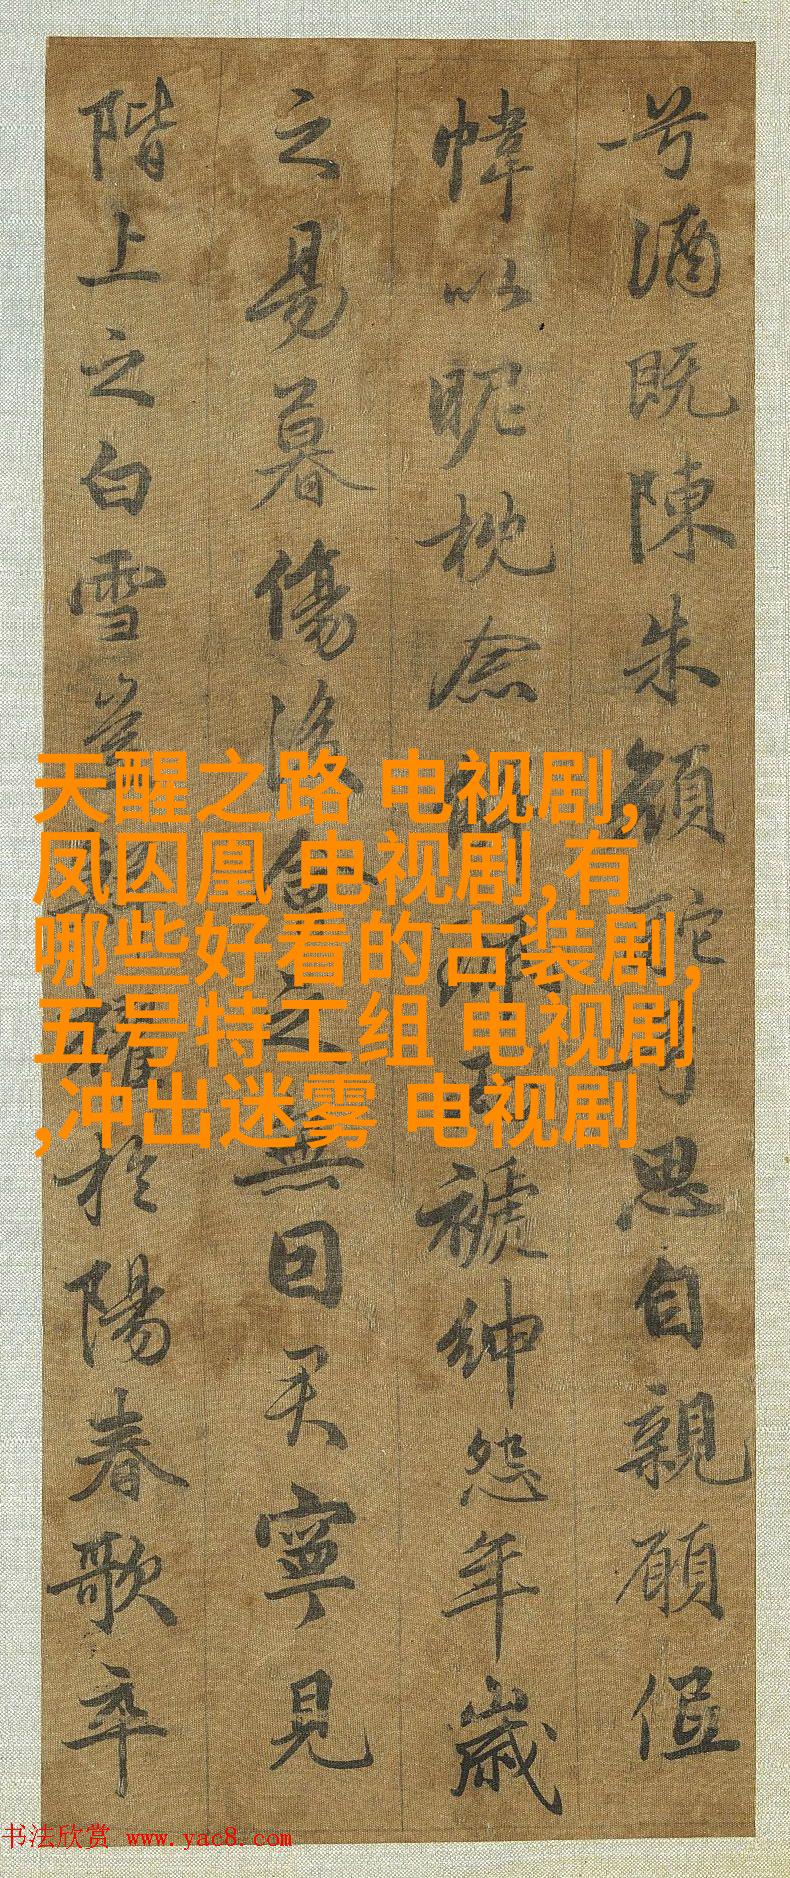 兮酒既陳朱顏酡兮思自親願低
幃以昵枕念褫紳怨年歲
之易暮傷後會之無因君寧見
階上之白雪豈耀於陽春歌卒
天醒之路 电视剧,
凤囚凰 电视剧,有
哪些好看的古装剧,
五号特工组 电视剧
,冲出迷雾 电视剧
书法欣赏 www.yac8.com